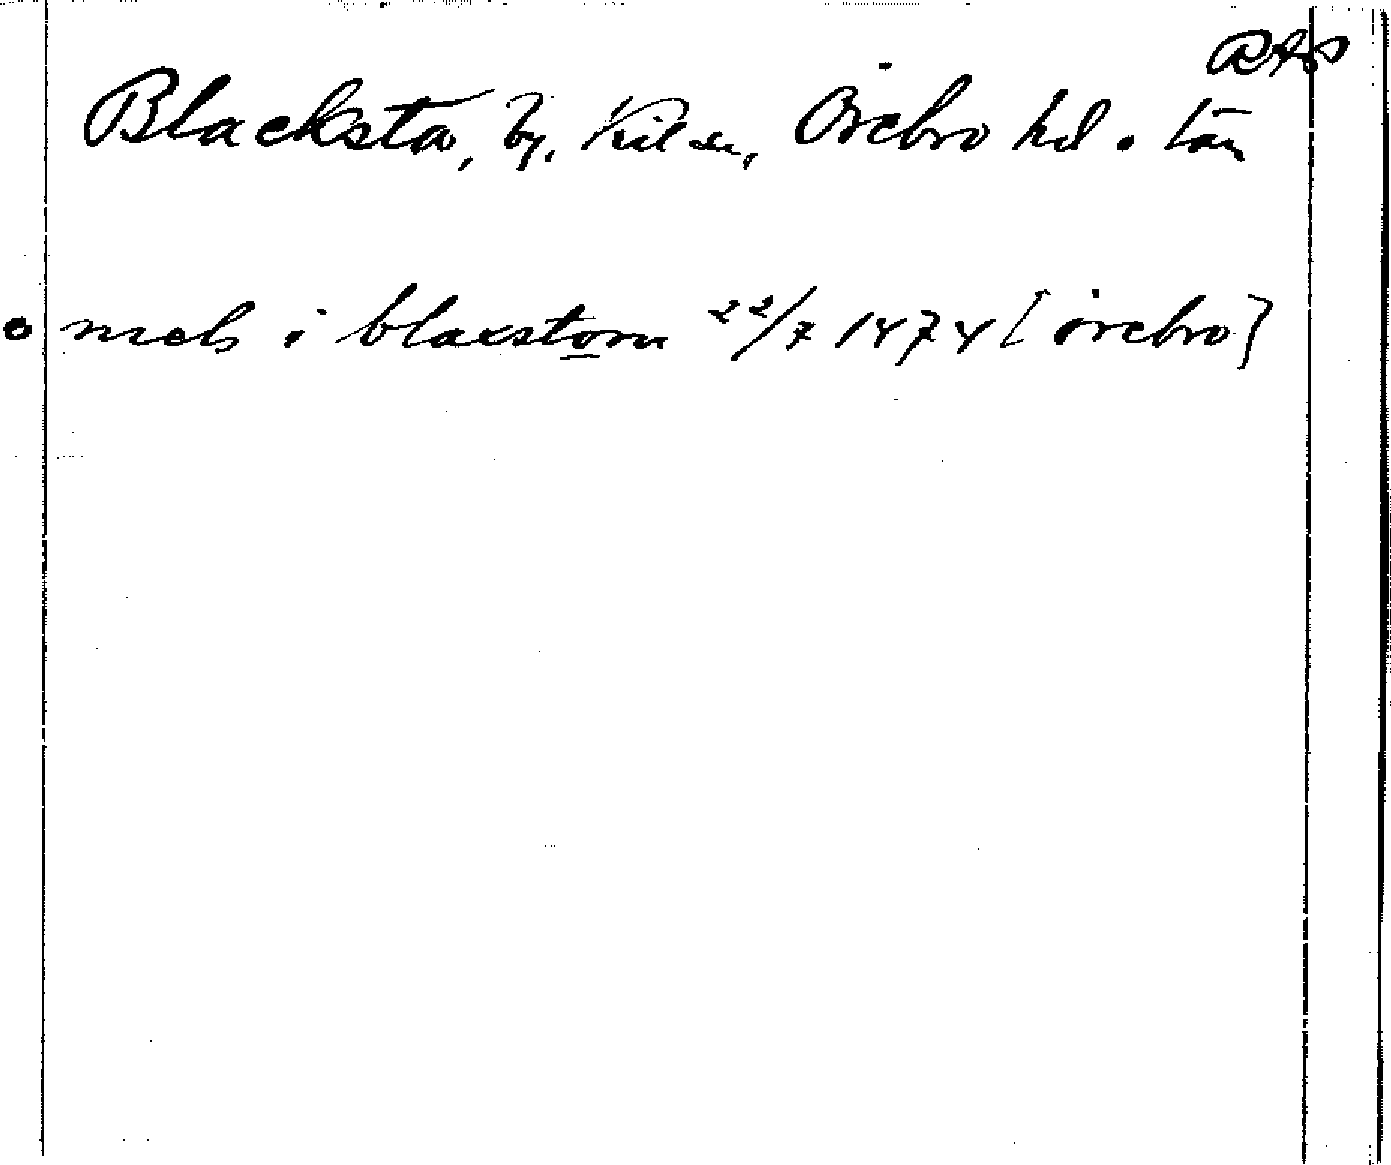 RAP
Blacksta, by, Kil sn, Örebro hd o. län
nels i blaxstom 22/7 1474 [örebro]